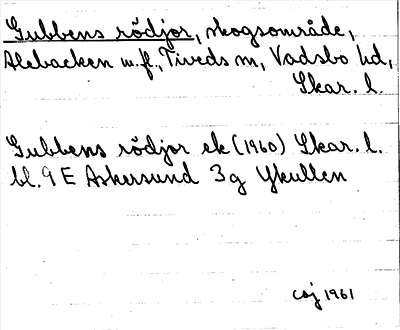 Gubbens rödjor, skogsområde,
Alebacken m.fl., Tiveds sn, Vadsbo hd,
Skar. l.
Gubbens rödjor ek (1960) Skar. l.
bl. 9 E Askersund 3g Ykullen
CSJ 1961